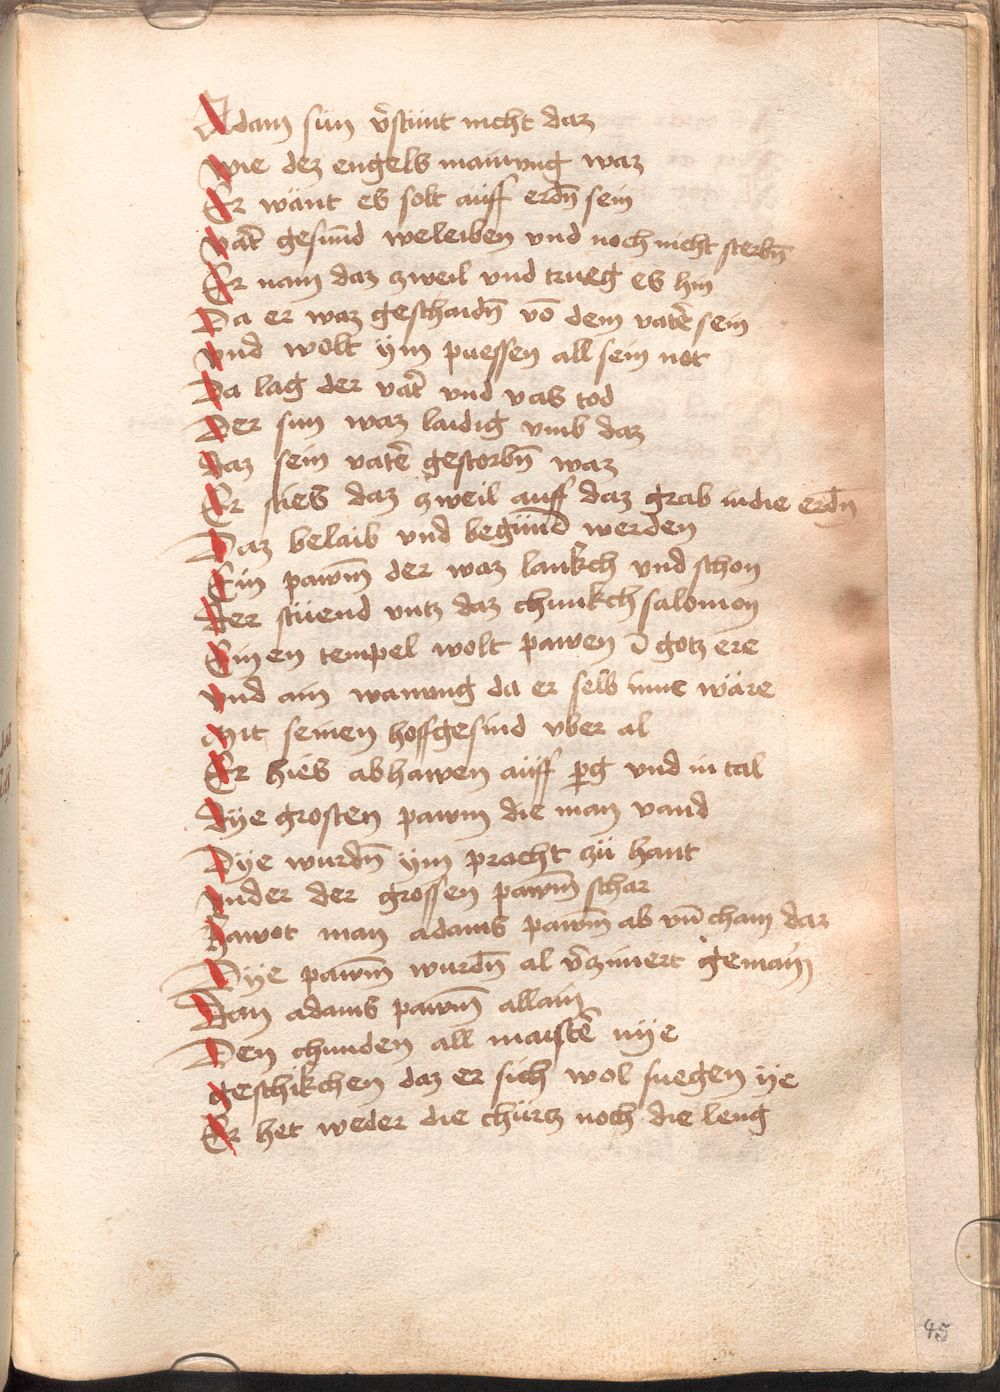 Adam sun v̄stünt nicht daz
wie dez engels mainung waz
Er wänt es solt auff erdn̄ sein
vat̄ gesund weleiben vnd noch nicht sterbn̄
Er nam daz zweil vnd trueg es hin
Da er waz geschaidn̄ vō dem vatē sein
vnd wolt ÿm puessen all sein not
Da lag der vat̄ vnd vas tod
Der sun waz laidig vmb daz
daz sein vatē gestorbn̄ waz
Er sties daz zweil auff daz grab in die erdn̄
Daz belaib vnd begund werden
Ein pawm̄ der waz lankch vnd schon
der stuend vntz daz chunkch salomon
Einen tempel wolt pawen ī gotz ere
vnd ain wanung da er selb inne wäre
mit seinen hoffgesind vber al
Er hies abhawen auff p̱g vnd in tal
dÿe grosten pawm die man vand
Dÿe wurdn̄ ÿm pracht zü hant
vnder der grossen pawm̄ schar
Hawot man adams pawm̄ ab vn̄ cham dar
Dÿe pawm̄ wurdn̄ al v̄zimert gemain
Den adams pawm̄ allain
Den chunden all maistē nÿe
geschikchen daz er sich wol fuegen ÿe
Er het weder die chürtz noch die leng
45